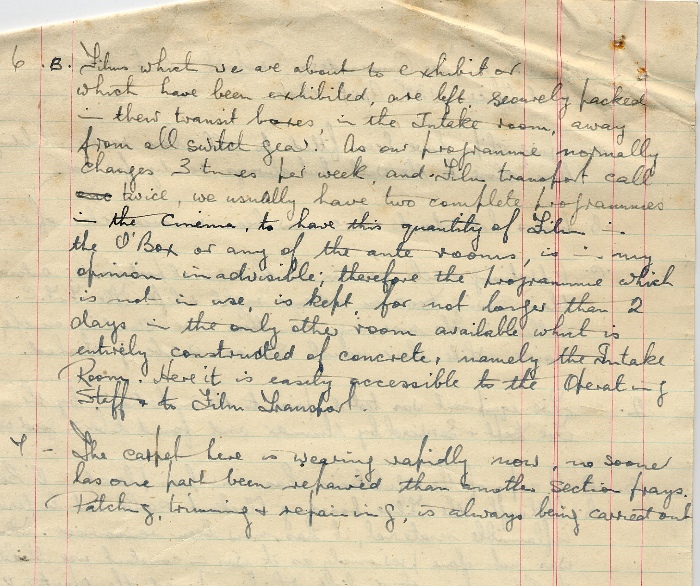 6 B. Films which we are about to exhibit or
which have been exhibited, are left, securely packed
in their transit boxes, in the Intake room, away
from all switch gear. As our programme normally
changes 3 times per week, and Film transport call
twice, we usually have two complete programmes
in the Cinema, to have this quantity of Film in
the O'Box or any of the ante rooms, is in my
opinion inadvisible; therefore the programme which
is not in use, is kept for not longer than 2
days in the only other room available which is
entirely constructed of concrete, namely the Intake
Room. Here it is easily accessible to the Operating
Staff & to Film Transport.
7 - The carpet here is wearing rapidly now, no sooner
has one part been repaired than another section frays.
Patching, trimming & repairing, is always being carried out